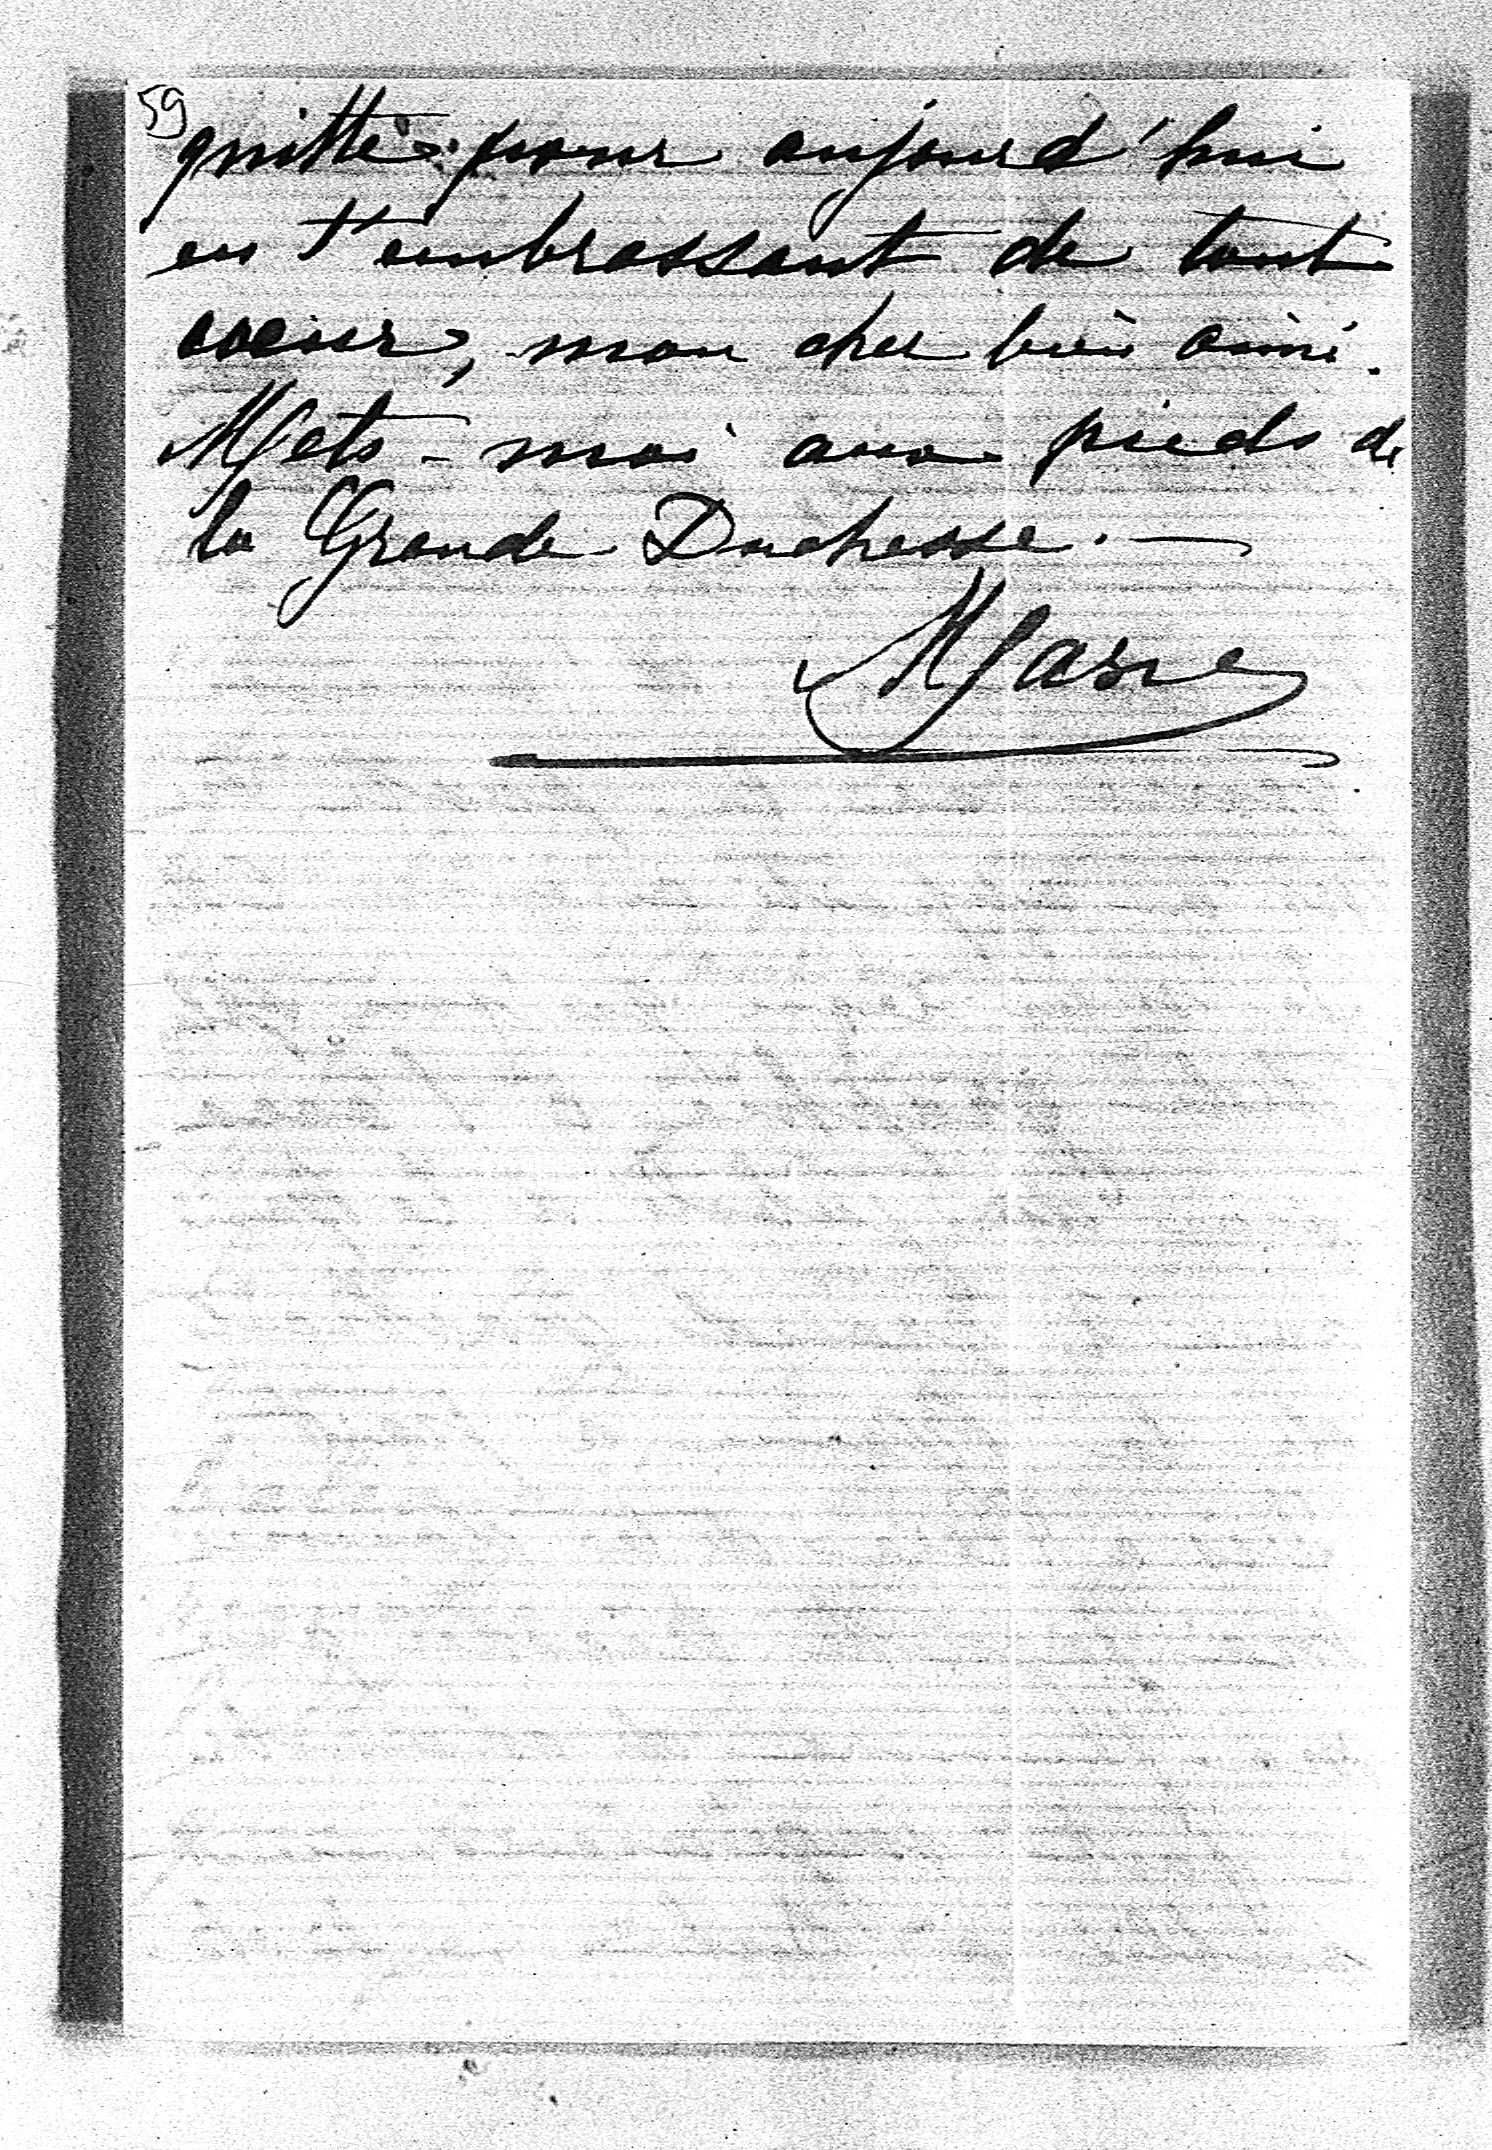 59
quitte pour aujourd'hui
en t'embrassant de tout
coeur, mon cher bien aimé.
Mets-moi aux pieds de
la Grande Duchesse. —